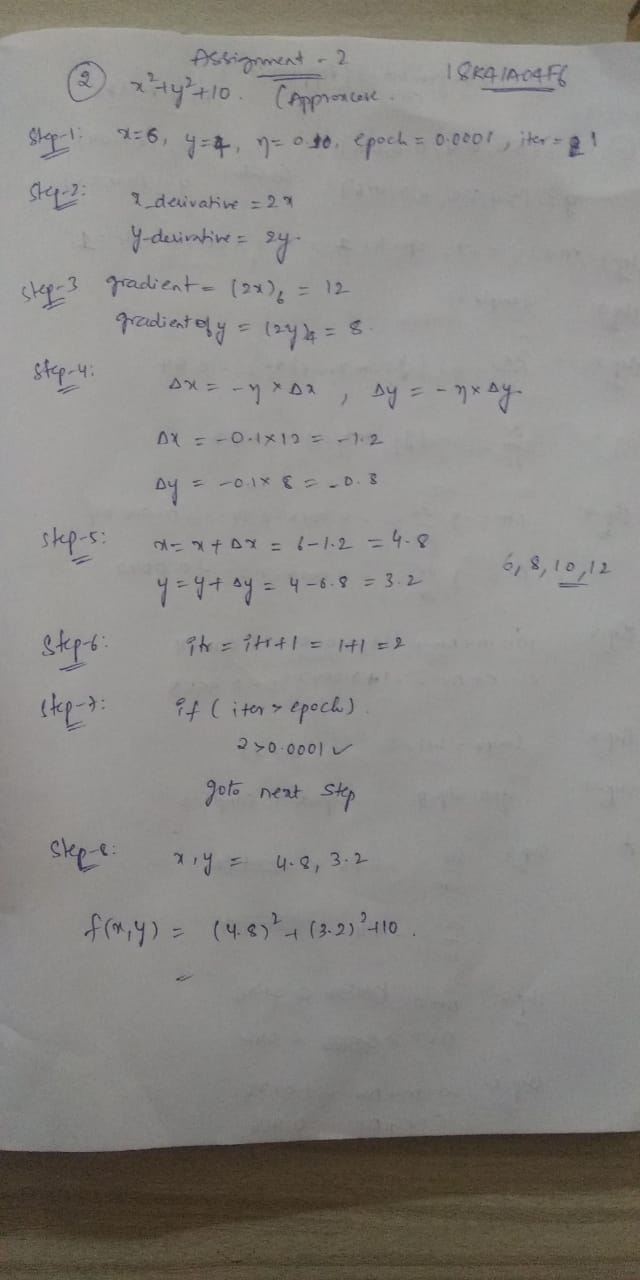 Assignment - 2
18KA1A04F6
② x²+y²+10. (Approxcase.
Step-1: x=6, y=4, η=0.10, epoch = 0.0001, iter = 1
Step-2: x_derivative = 2x
y-derivative = 2y.
Step-3 gradient = (2x)₆ = 12
gradient of y = (2y)₄ = 8.
Step-4: Δx = -η × Δx , Δy = -η×Δy
Δx = -0.1×12 = -1.2
Δy = -0.1× 8 = -0.8
Step-5: x = x + Δx = 6-1.2 = 4.8
y = y + Δy = 4-0.8 = 3.2
6, 8, 10, 12
Step-6: itr = itr+1 = 1+1 = 2
Step-7: if (iter > epoch)
2 > 0.0001 ✓
goto next step
Step-8: x, y = 4.8, 3.2
f(x,y) = (4.8)² + (3.2)² +10.